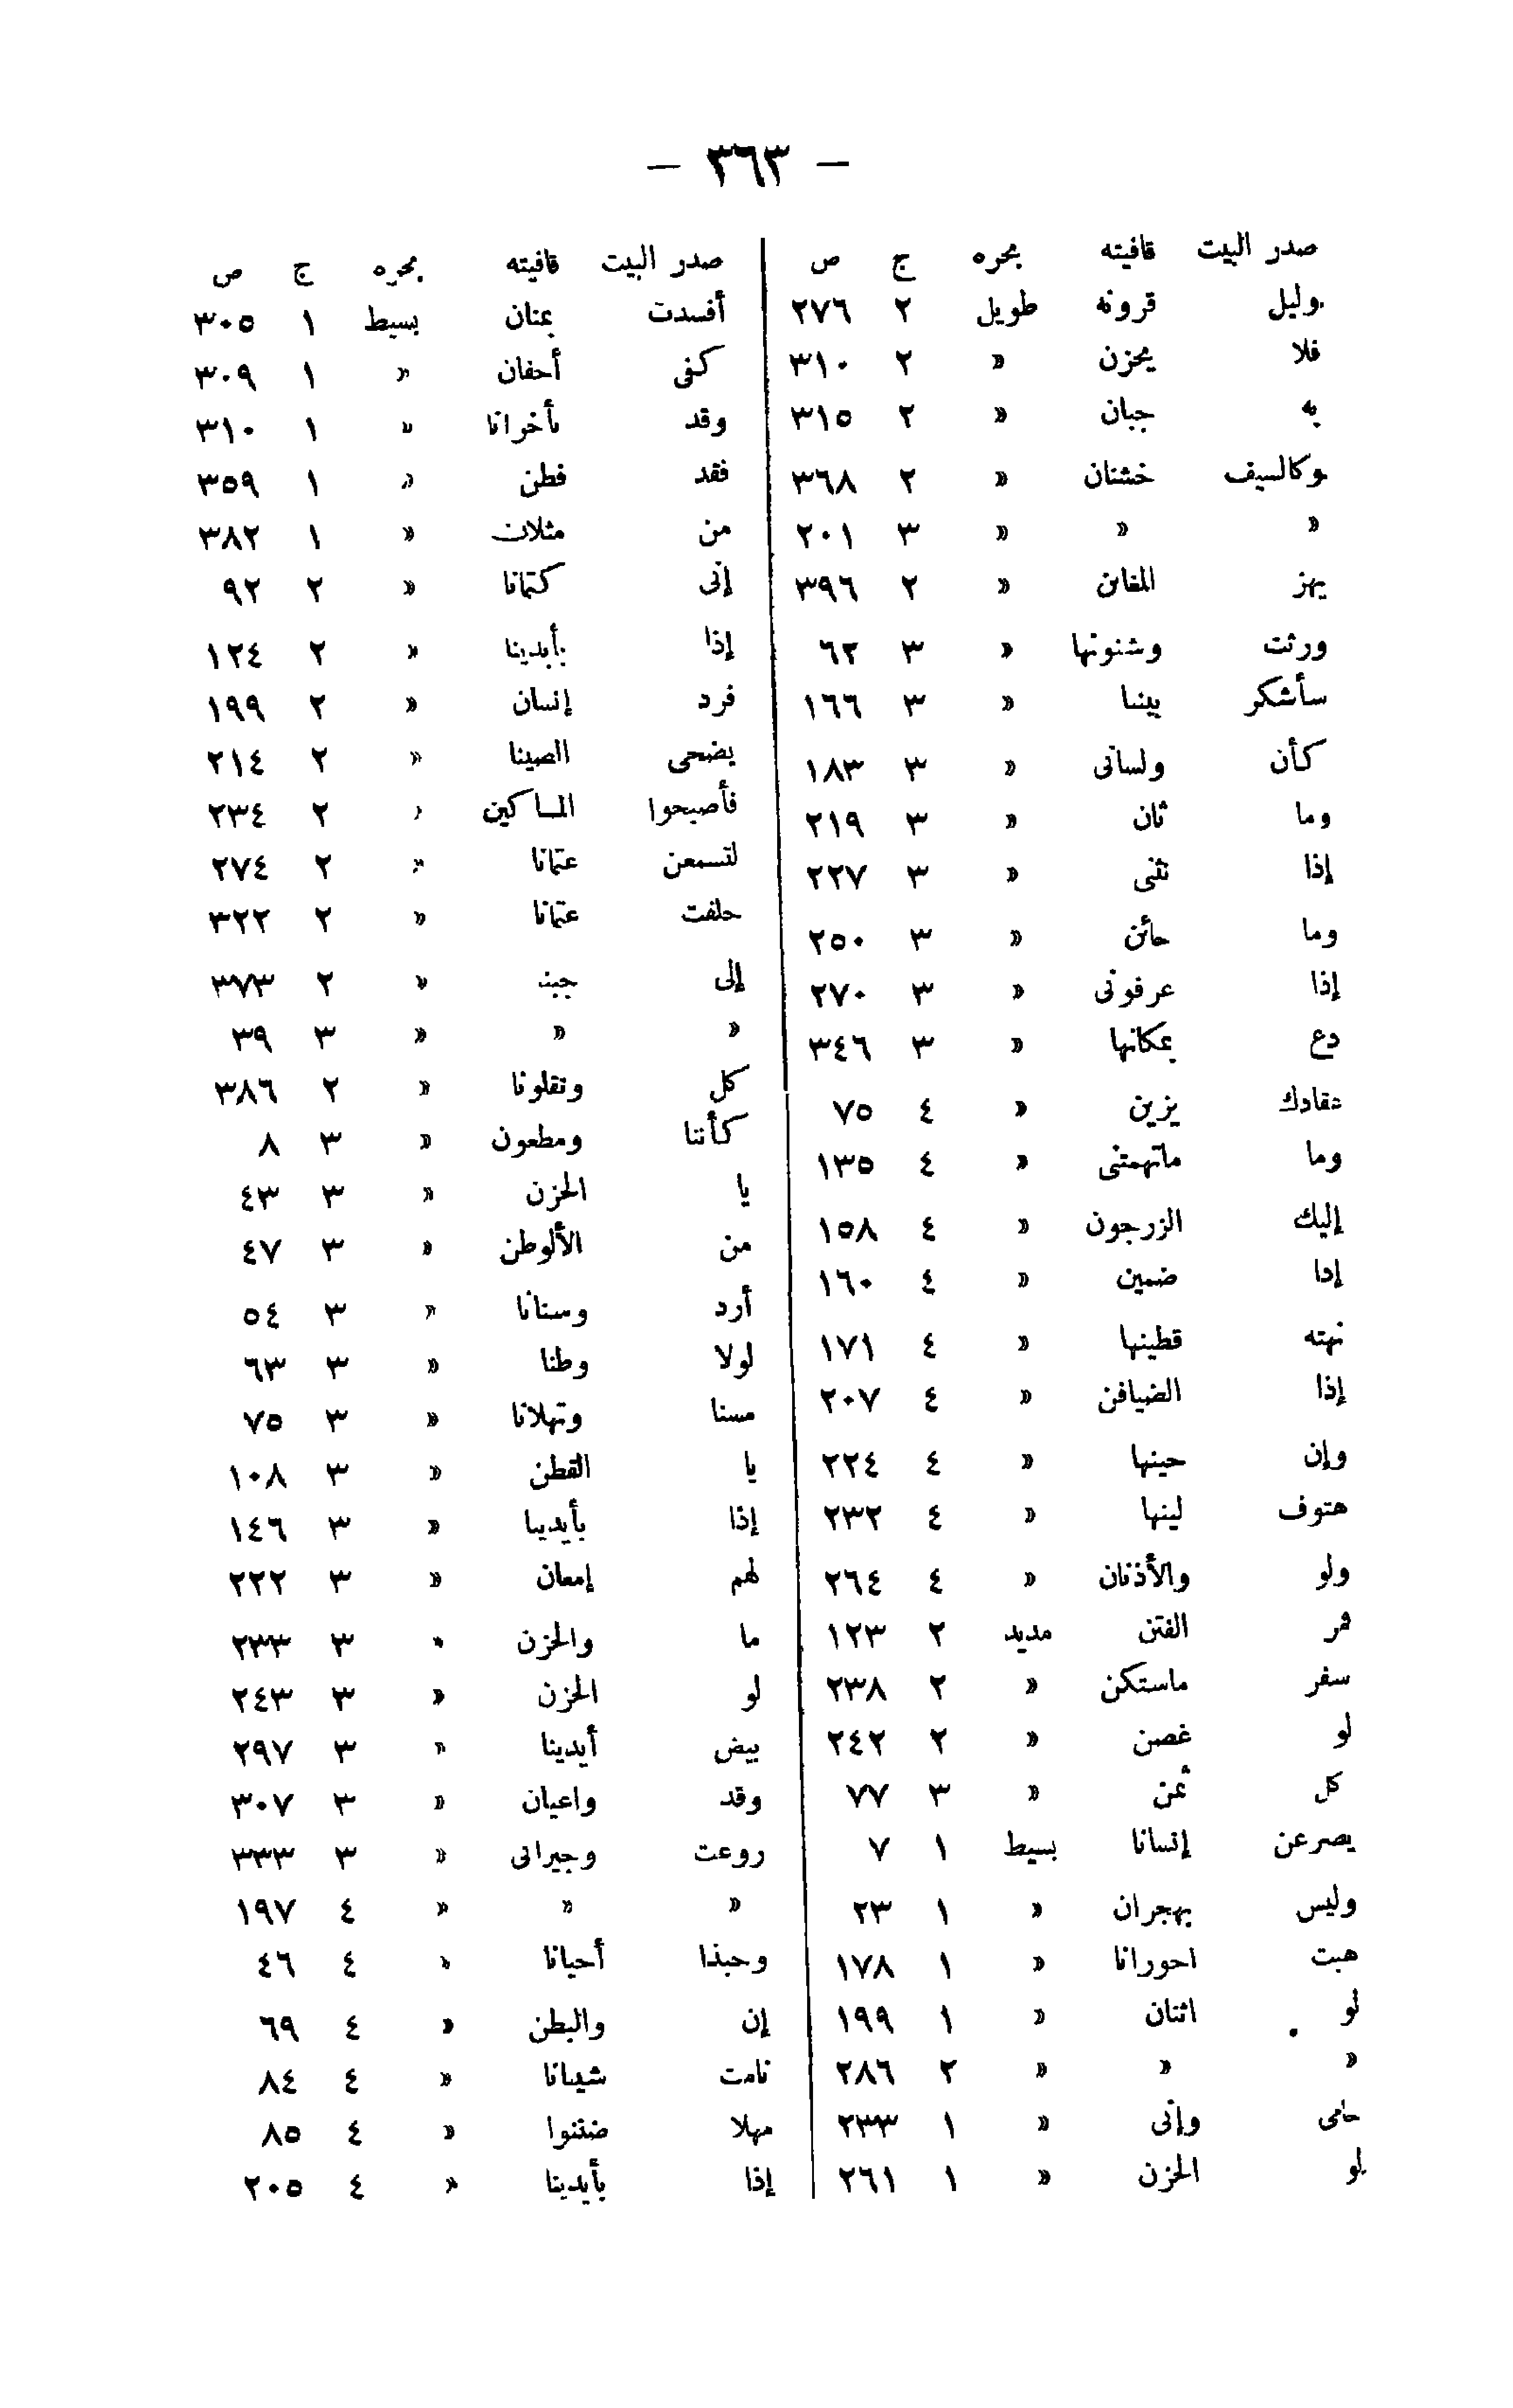 — ٣٦٣ —
صدر البيت قافيته بحره ج ص
وليل قرونه طويل ٢ ٢٧٦
فلا يحزن » ٢ ٣١٠
به جبان » ٢ ٣١٥
وكالسيف خشنان » ٢ ٣٦٨
» » » ٣ ٢٠١
يهز المغابن » ٢ ٣٩٦
ورثت وشنونها » ٣ ٦٢
سأشكر بيننا » ٣ ١٦٦
كأن ولسانى » ٣ ١٨٣
وما ثان » ٣ ٢١٩
إذا نثنى » ٣ ٢٢٧
وما حائن » ٣ ٢٥٠
إذا عرفونى » ٣ ٢٧٠
دع بمكانها » ٣ ٣٤٦
عقادك يزين » ٤ ٧٥
وما ماتهمتنى » ٤ ١٣٥
إليك الزرجون » ٤ ١٥٨
إدا ضمين » ٤ ١٦٠
نهته قطينها » ٤ ١٧١
إذا الضيافن » ٤ ٢٠٧
وإن حينها » ٤ ٢٢٤
هتوف لينها » ٤ ٢٣٢
ولو والأذنان » ٤ ٢٦٤
قمر الفتن مديد ٢ ١٢٣
سفر ماستكن » ٢ ٢٣٨
لو غصن » ٢ ٢٤٢
كل ثمن » ٣ ٧٧
يصرعن إنسانا بسيط ١ ٧
وليس بهجران » ١ ٢٣
هبت احورانا » ١ ١٧٨
لو اثنان » ١ ١٩٩
» » » ٢ ٢٨٦
حامى وإنى » ١ ٢٣٣
لو الحزن » ١ ٢٦١
صدر البيت قافيته بحره ج ص
أفسدت بمنان بسيط ١ ٣٠٥
كفى أحفان » ١ ٣٠٩
وقد بأخرانا » ١ ٣١٠
فقد فطن » ١ ٣٥٩
من مثلان » ١ ٣٨٢
إنى كتمانا » ٢ ٩٢
إذا بأيدينا » ٢ ١٢٤
فرد إنسان » ٢ ١٩٩
يضحى الصينا » ٢ ٢١٤
فأصبحوا المساكين » ٢ ٢٣٤
لتسمعن عثمانا » ٢ ٢٧٤
حلفت عثمانا » ٢ ٣٢٢
إلى » ٢ ٣٧٣
» » » ٣ ٣٩
كل وتقلونا » ٢ ٣٨٦
كأننا ومطعون » ٣ ٨
يا الحزن » ٣ ٤٣
من الألوطن » ٣ ٤٧
أرد وسنانا » ٣ ٥٤
لولا وطنا » ٣ ٦٣
مسنا وتهلانا » ٣ ٧٥
يا القطن » ٣ ١٠٨
إذا بأيدينا » ٣ ١٤٦
لهم إمعان » ٣ ٢٢٢
ما والحزن » ٣ ٢٣٣
لو الحزن » ٣ ٢٤٣
بيض أيدينا » ٣ ٢٩٧
وقد واعيان » ٣ ٣٠٧
روعت وجيرانى » ٣ ٣٣٣
» » » ٤ ١٩٧
وحبذا أحيانا » ٤ ٤٦
إن والبطن » ٤ ٦٩
نامت شيبانا » ٤ ٨٤
مهلا ضننوا » ٤ ٨٥
إذا بأيدينا » ٤ ٢٠٥